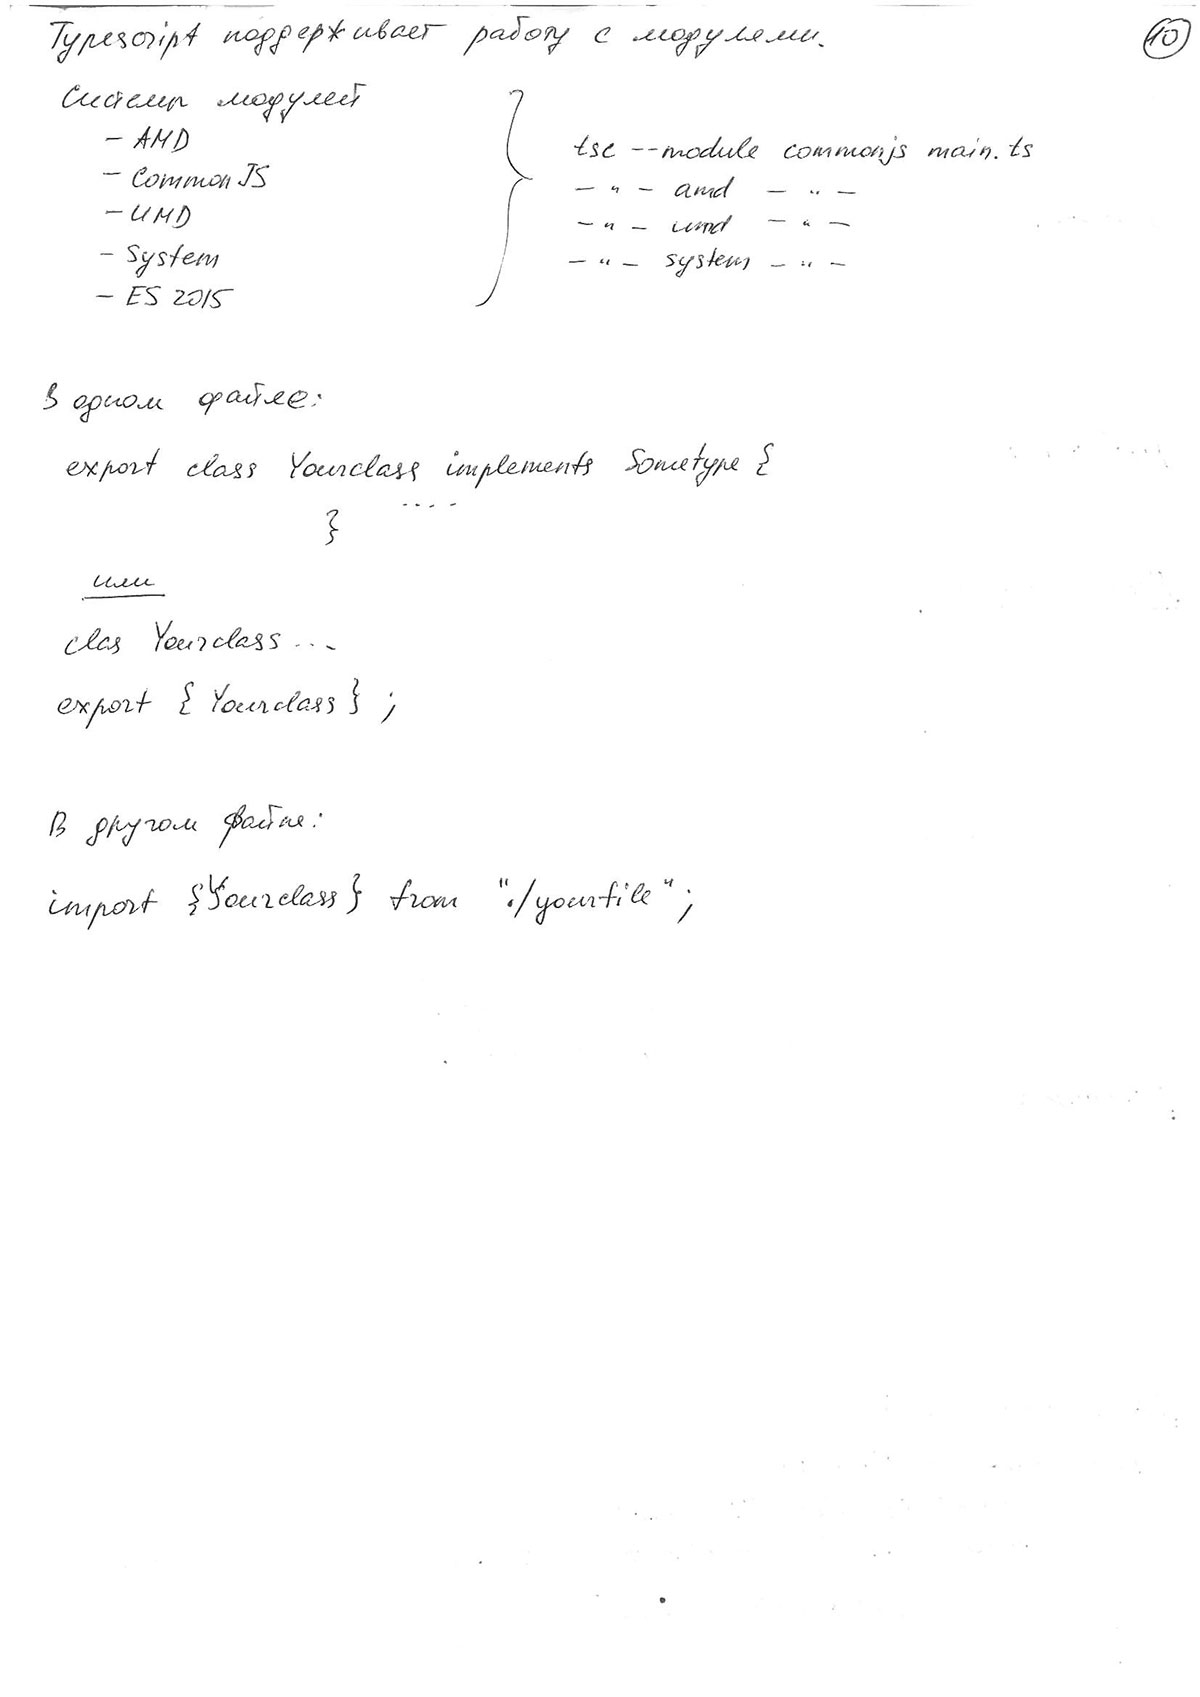 Typescript поддерживает работу с модулями.
10
Системы модулей
- AMD
- CommonJS
- UMD
- System
- ES 2015
tsc --module commonjs main.ts
- " - amd - " -
- " - umd - " -
- " - system - " -
В одном файле:
export class Yourclass implements Sometype {
....
}
или
clas Yourclass ...
export { Yourclass } ;
В другом файле:
import {Yourclass} from "./yourfile";